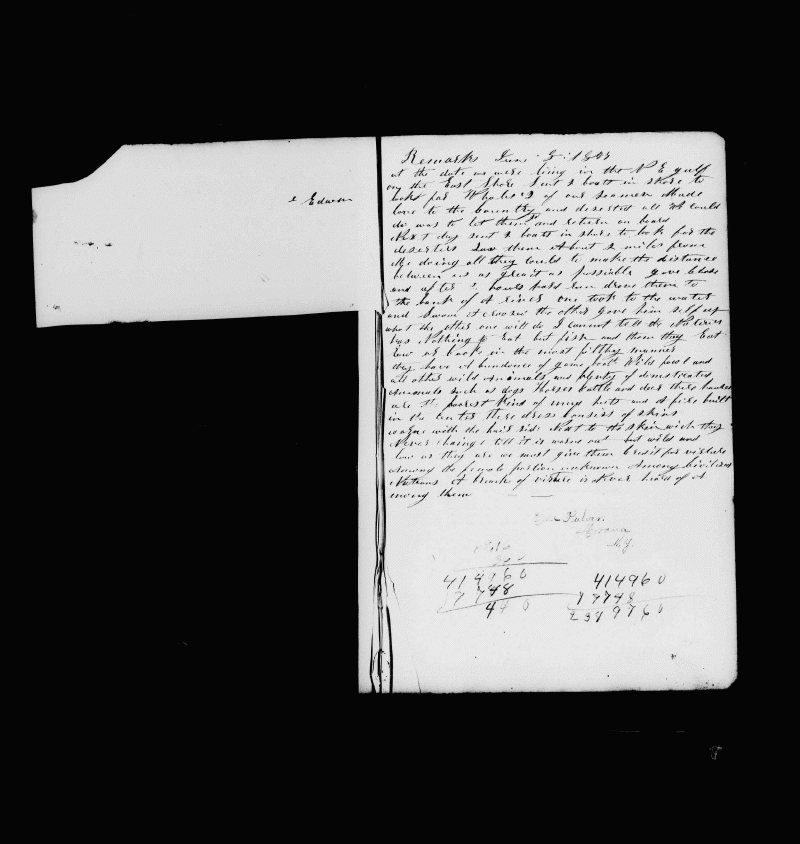 Edwin
Remarks June
at the date as were lieing in the N E gulf
on the East Shore Sent 2 boats in shore to
look for Whales 2 of our seamen Made
love to the Country and deserted all We Could
do was to let them and return on board
Next day sent 2 boats in shore to look for the
deserters Saw them About 2 miles from
Me doing all they Could to make the distance
between us as great as possiable gave Chase
and after 2 hours hard run drove them to
the bank of A river one took to the water
and Swam A cross the other gave him self up
what the other one will do I cannot tell the Natives
has Nothing to Eat but fish and them they Eat
raw or Cook in the most filthy manner
they have Abundence of game Wild fowl and
all other wild Animals and plenty of domesticated
Animals such as dogs Horses Cattle and deer there houses
are the poorest kind of huts and A fire built
in the Center there dress Consists of Skins
worne with the hair side Next to the Skin wich they
Never Chainge till it is worne out but wild and
low as they are we must give them Credit for virture
Among the female portion unknown Among Civilised
Nations A breach of virture is Never heard of A
mong them
N.Y.
414960
7748
440
414960